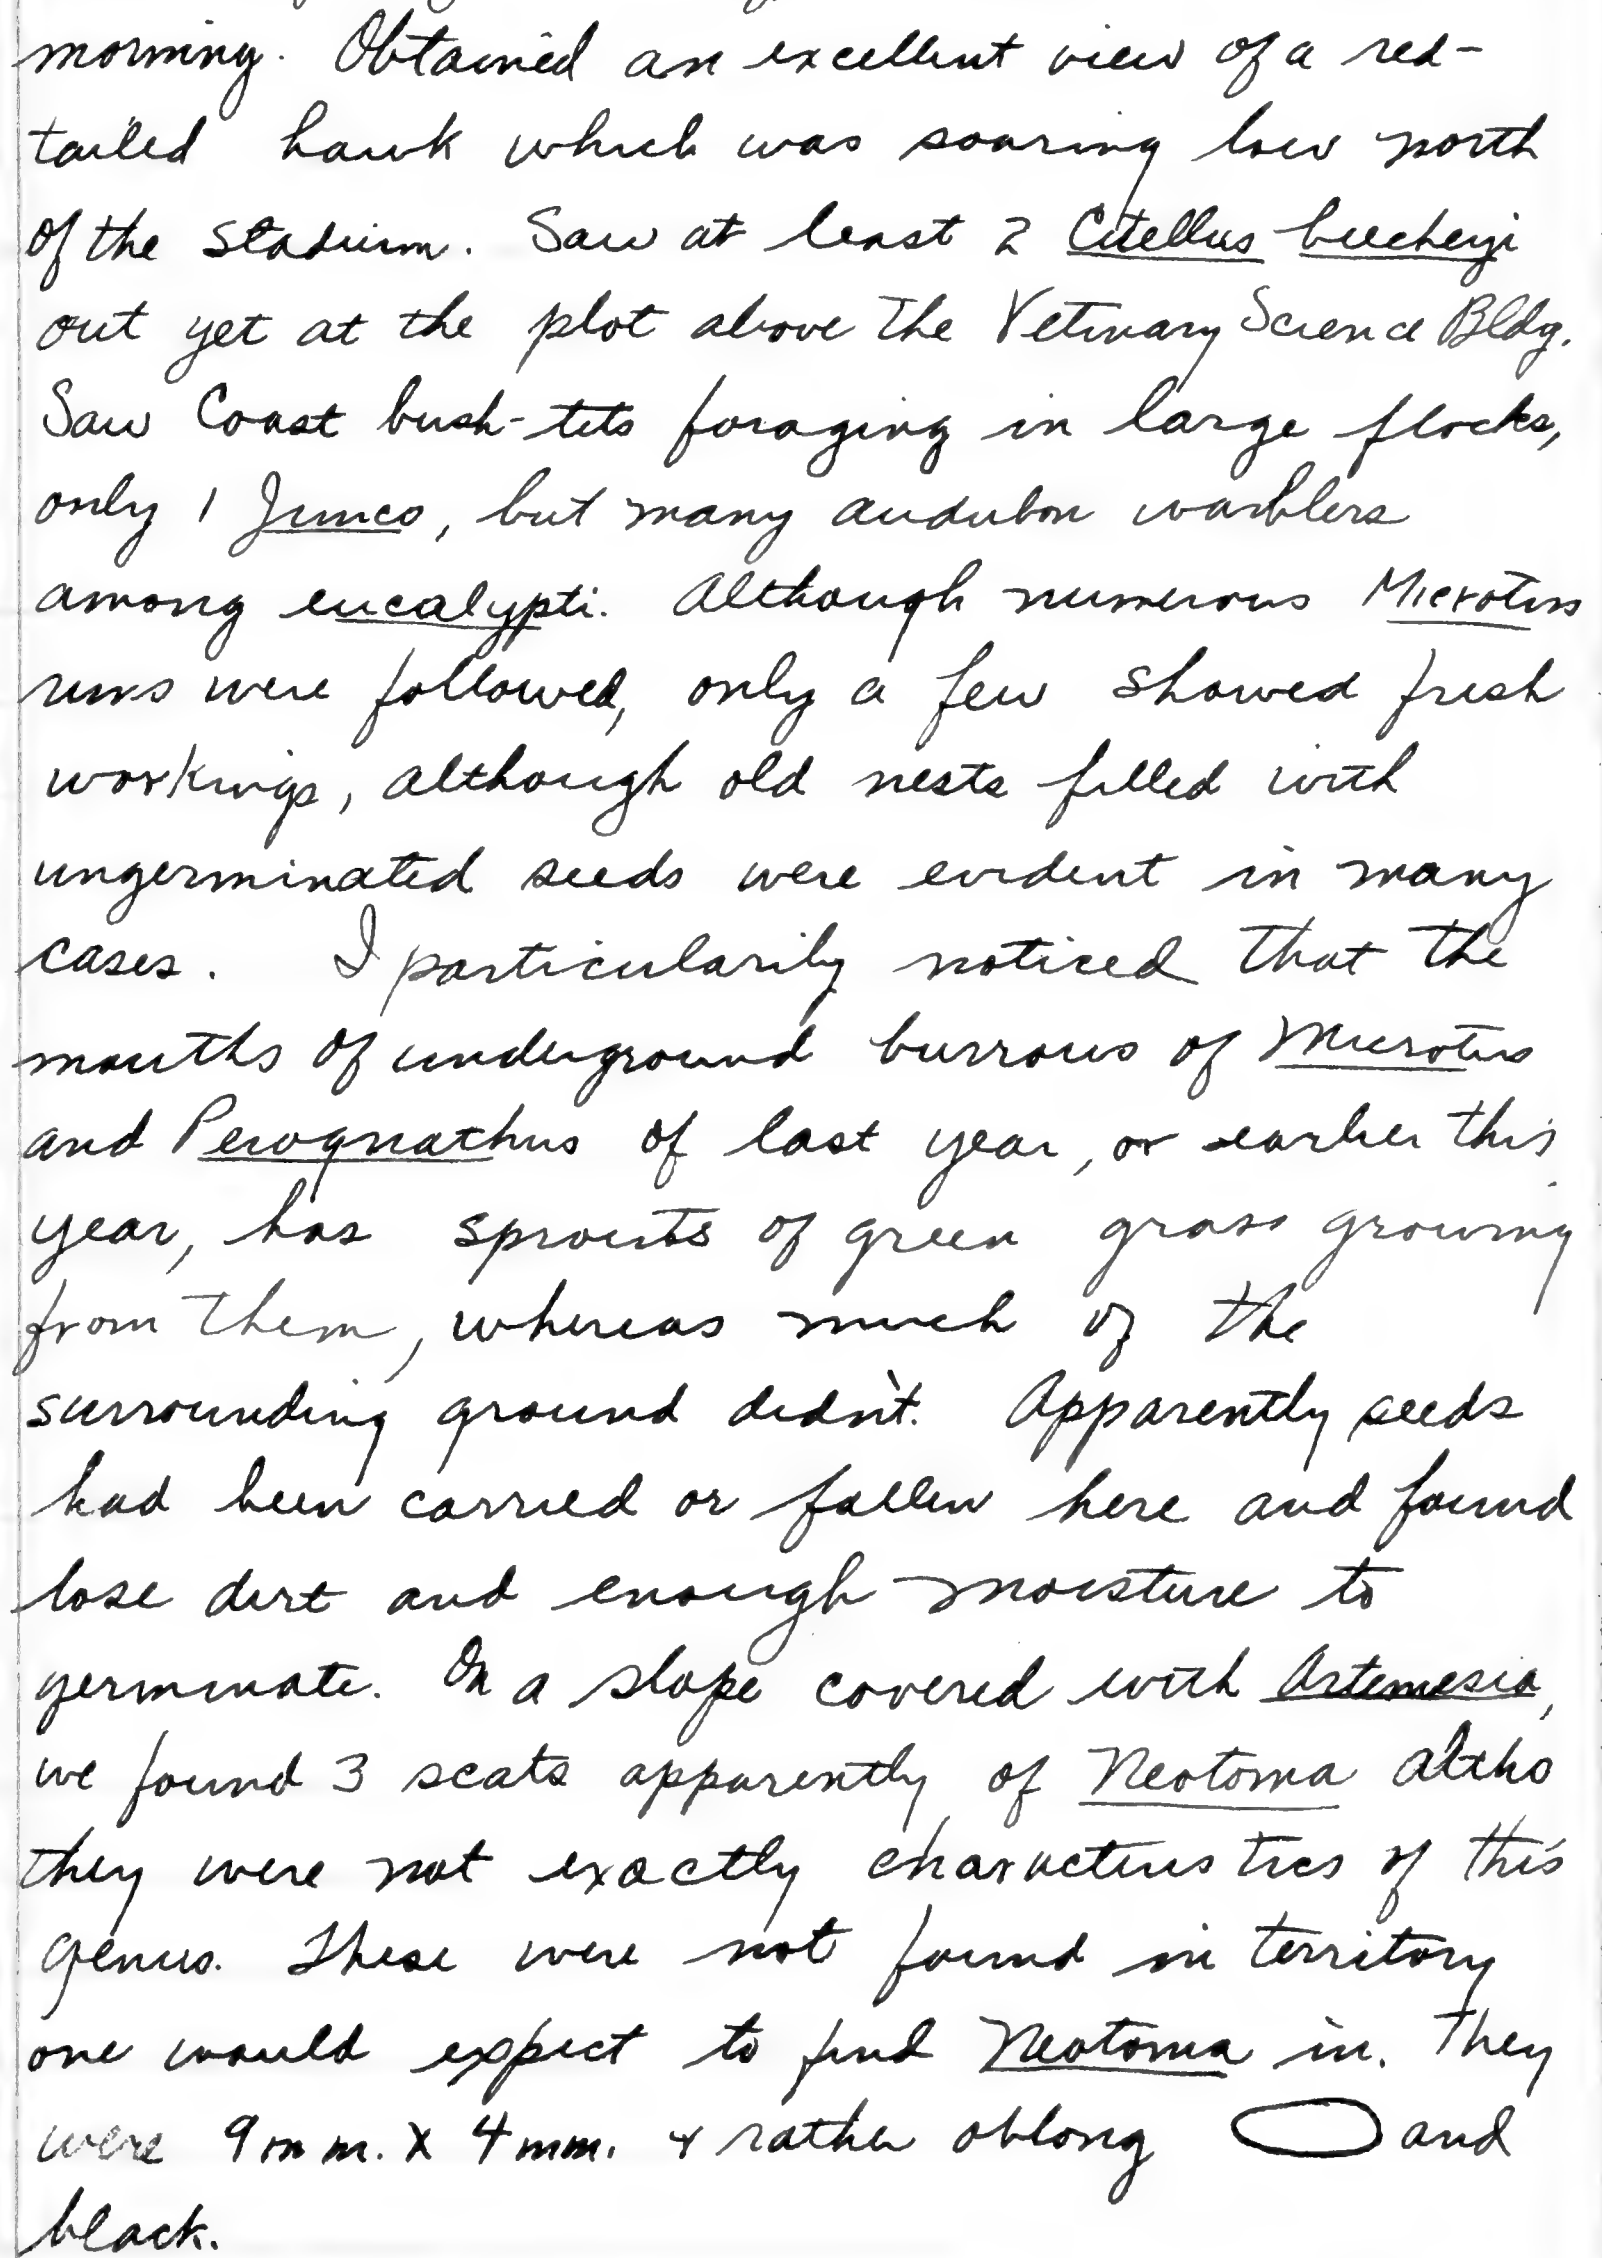 morning. Obtained an excellent view of a red-
tailed hawk which was soaring low north
of the stadium. Saw at least 2 Citellus beecheyi
out yet at the plot above the Vetinary Science Bldg.
Saw Coast bush-tits foraging in large flocks,
only 1 Junco, but many audubon warblers
among eucalypti. Although numerous Microtus
runs were followed, only a few showed fresh
workings, although old nests filled with
ungerminated seeds were evident in many
cases. I particularily noticed that the
mouths of underground burrows of Microtus
and Perognathus of last year, or earlier this
year, has sprouts of green grass growing
from them, whereas much of the
surrounding ground didn't. Apparently seeds
had been carried or fallen here and found
lose dirt and enough moisture to
germinate. On a slope covered with Artemesia,
we found 3 scats apparently of Neotoma altho
they were not exactly characteristics of this
genus. These were not found in territory
one would expect to find Neotoma in. They
were 9mm. x 4mm. & rather oblong and
black.